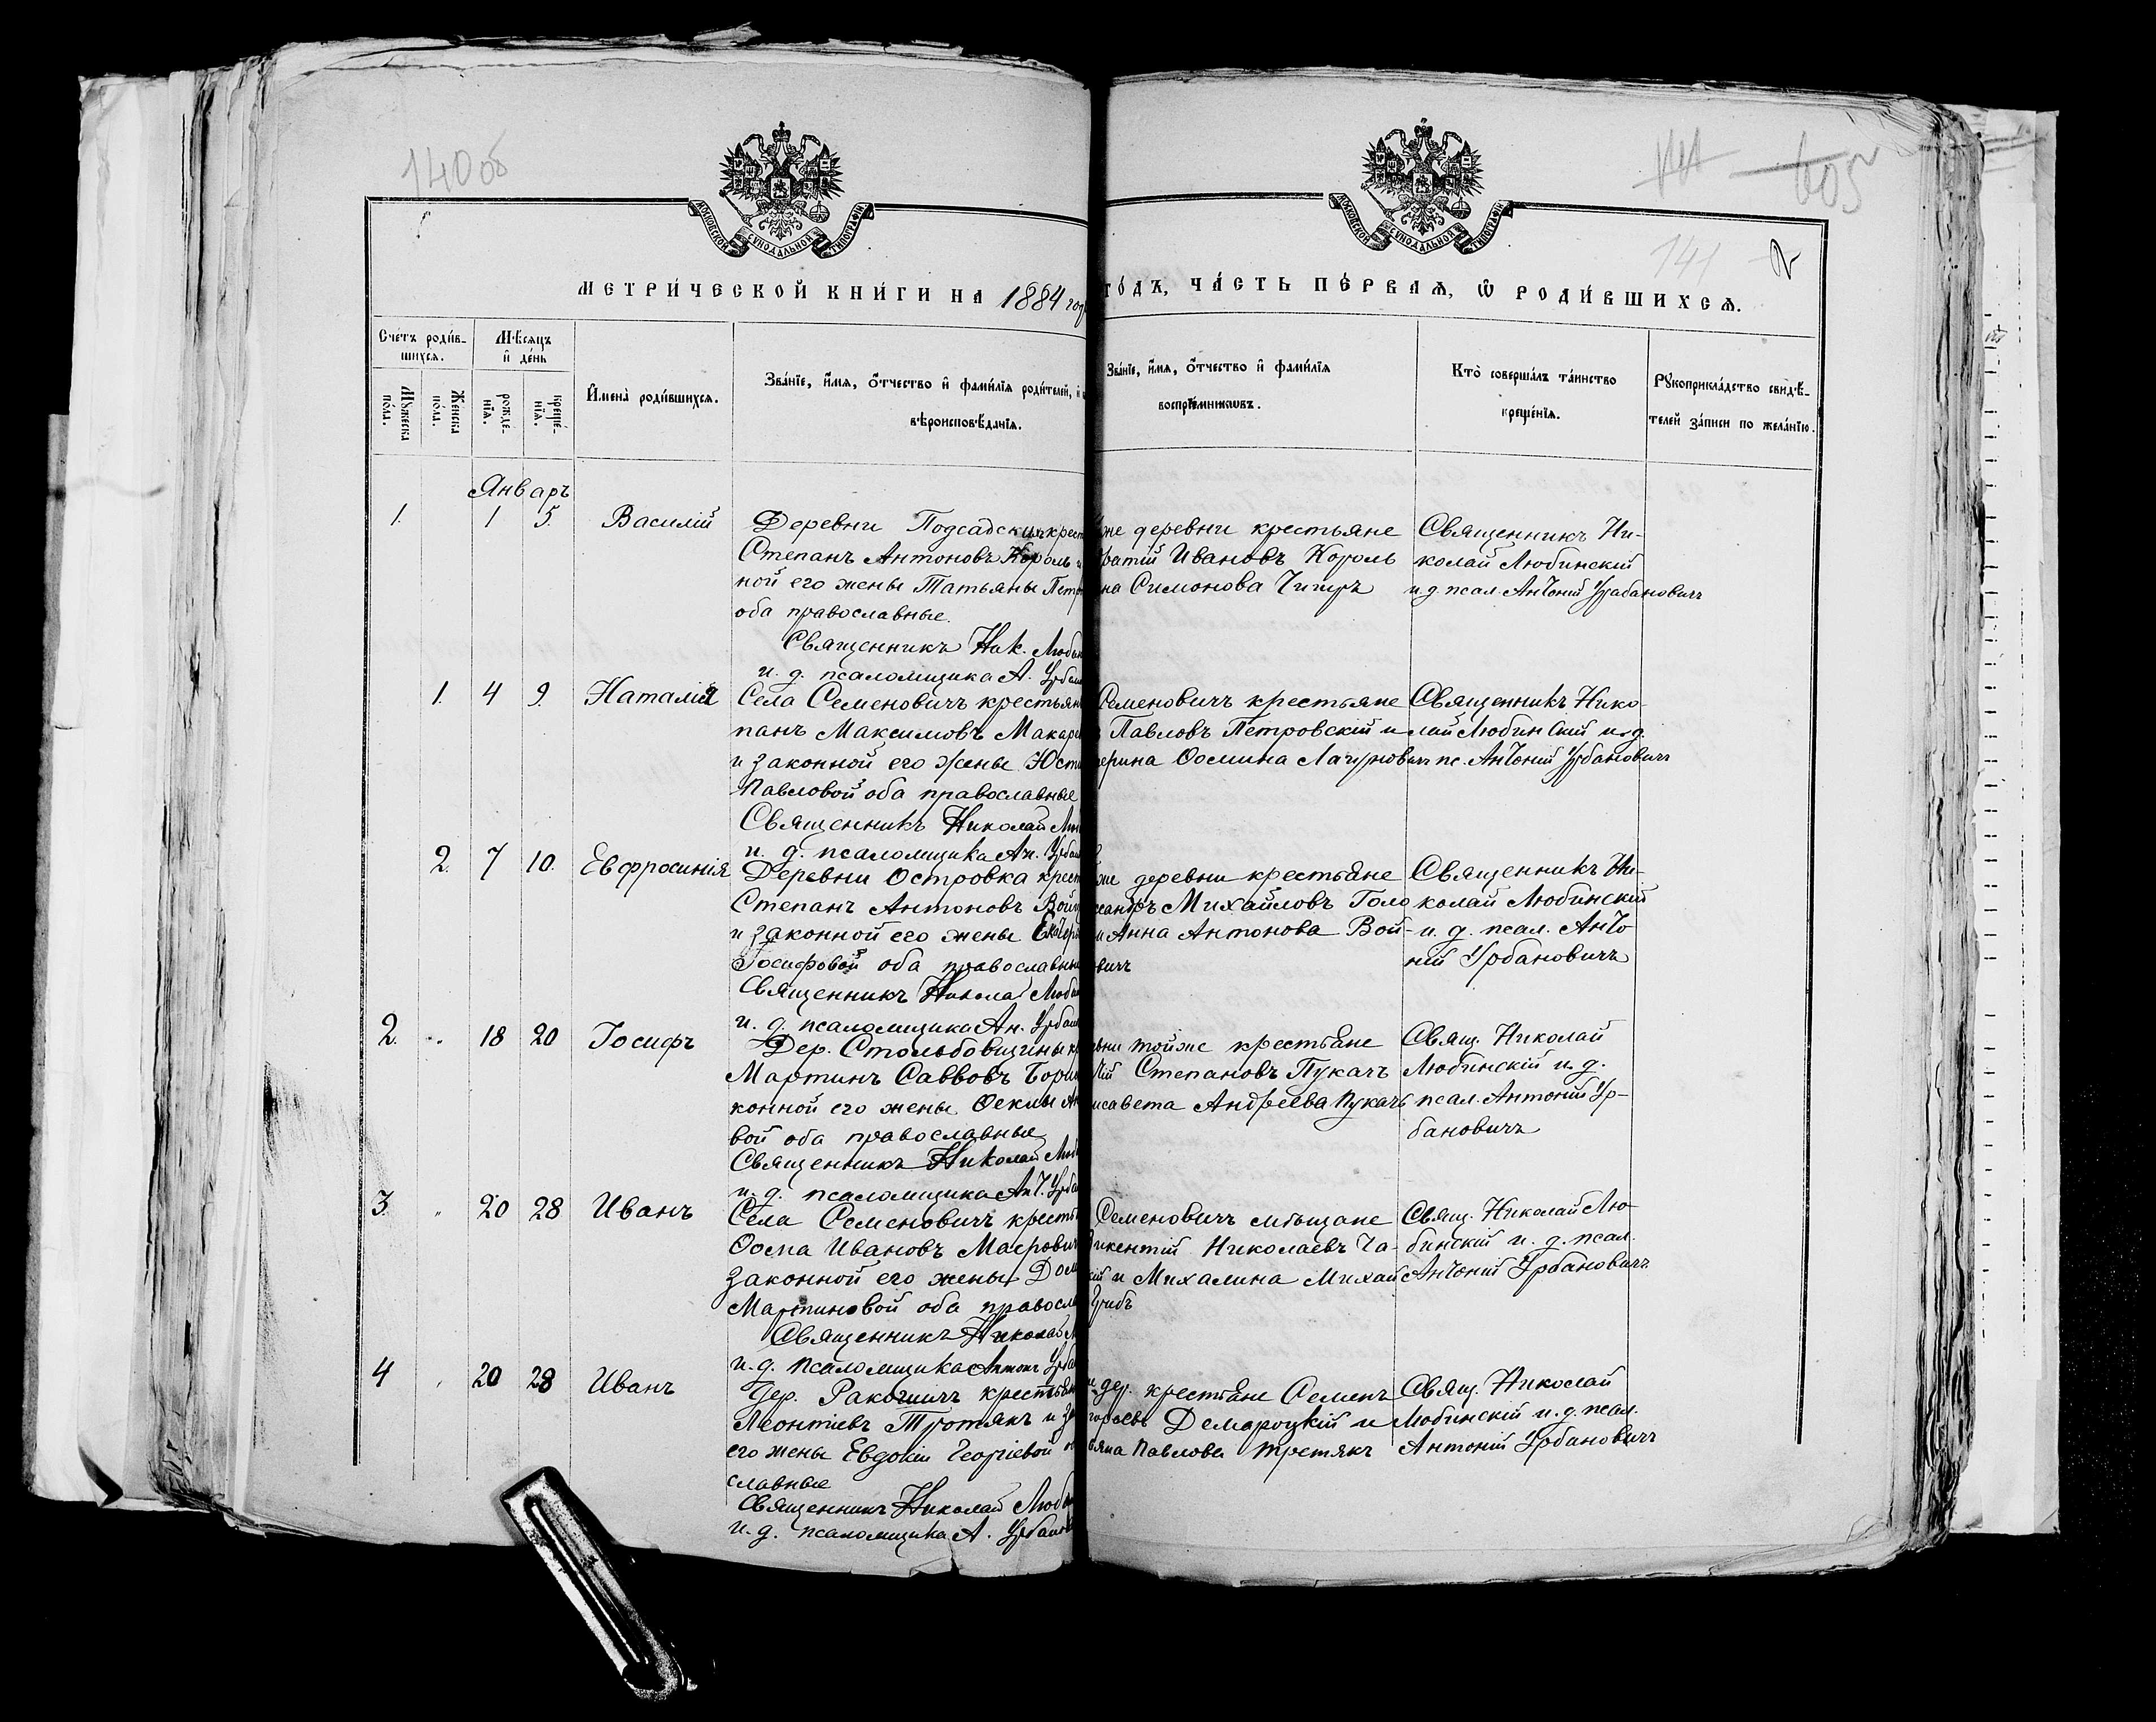 140об
605
141
2
МОСКОВСКОЙ СУНОДАЛЬНОЙ ТИПОГРАФІИ
МОСКОВСКОЙ СУНОДАЛЬНОЙ ТИПОГРАФІИ
МЕТРИ́ЧЕСКОЙ КНИ́ГИ НА 1884 го
ГО́ДЪ, ЧА́СТЬ ПЕ́РВАѦ, Ѿ РОДИ́ВШИХСѦ.
Сче́тъ роди́в-
шихсѧ.
Мꙋ́жеска по́ла.
Же́нска по́ла.
Мѣ́сѧцъ и де́нь
рожде́-нїѧ.
креще́-нїѧ.
И҆мена̀ роди́вшихсѧ.
Зва́нїе, и҆́мѧ, ѻ҆́тчество и҆ фами́лїѧ роди́телей, и҆
вѣроисповѣ́данїѧ.
Зва́нїе, и҆́мѧ, ѻ҆́тчество и҆ фами́лїѧ
воспрїе́мниковъ.
Кто̀ соверша́лъ та́инство
креще́нїѧ.
Рꙋкоприкла́дство свидѣ́-
телей за́писи по жела́нїю.
Январь
1. 1 5. Василій
Деревни Подсадских крест
Степанъ Антоновъ Король и
ной его жены Татьяны Петр
оба православные.
Священникъ Ник. Любин
и. д. псаломщика А. Урбан
же деревни крестьяне
ратій Ивановъ Король
на Симонова
Священникъ Ни-
колай Любинскій
и д псал. Антоній Урбановичъ
1. 4 9. Наталія
Села Семеновичъ крестьян
панъ Максимовъ Макаре
и законной его жены Юсти
Павловой оба православные
Священникъ Николай Лю
и. д. псаломщика Ан. Урбан
Семеновичъ крестьяне
Павловъ Петровскій и
ерина Ѳомина
Священникъ Нико-
лай Любинскій и. д.
пс. Антоній Урбановичъ
2. 7 10. Евфросинія
Деревни Островка крест
Степанъ Антоновъ Вой
и законной его жены Екатери
Іосифовой оба православны
Священникъ Николай Люби
и. д. псаломщика Ан. Урбан
же деревни крестьяне
ксандръ Михайловъ Голо
и Анна Антонова Вой-
вичъ
Священникъ Ни-
колай Любинскій
и. д. псал. Анто
ній Урбановичъ
2. 18 20 Іосифъ
Дер. Столбовщины к
Мартинъ Саввовъ Бори
конной его жены Ѳеклы Ан
вой оба православные
Священникъ Николай Люб
и. д. псаломщика Ант. Урба
вни тойже крестьяне
лій Степановъ Пукачъ
исавета Андреева Пукачъ
Свящ. Николай
Любинскій и. д.
псал. Антоній Ур-
бановичъ
3. 20 28 Иванъ
Села Семеновичъ кресть
Ѳома Ивановъ Маерович
законной его жены Дом
Мартиновой оба правосла
Священникъ Николай Л
и. д. псаломщика Антон Урба
Семеновичъ мѣщане
икентій Николаевъ Ча-
кій и Михалина Михай
Грибъ
Свящ. Николай Лю-
бинскій и. д. псал.
Антоній Урбановичъ
4 20 28 Иванъ
Дер. Раковичъ крестьян
Леонтіевъ Третякъ и за
его жены Евдокіи Георгіевой
славные
Священникъ Николай Люби
и. д. псаломщика А. Урбанов
дер. крестьяне Семенъ
Демороцкій и
ьяна Павлова Третякъ
Свящ. Николай
Любинскій и. д. псал.
Антоній Урбановичъ